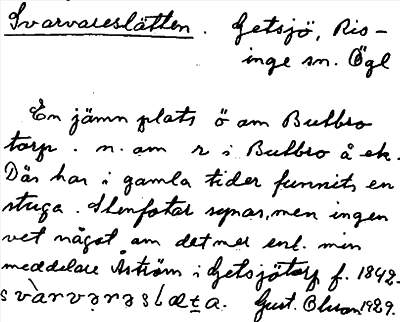 Svarvareslätten. Getsjö, Ris-
inge sn. Ögl
En jämn plats ö om Bulbro
torp. n. om r i Bulbro å ek.
Där har i gamla tider funnits en
stuga. Stenfotar synas, men ingen
vet något om det mer enl. min
meddelare Åström i Getsjötorp f. 1842.
Gust. Olsson 1929.